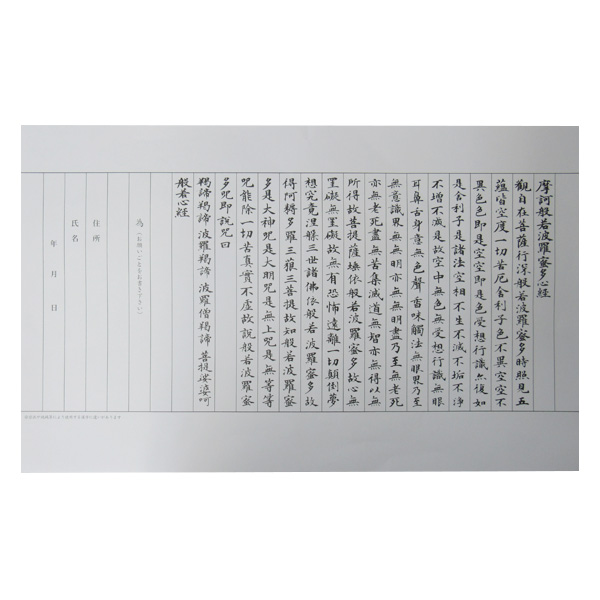 摩訶般若波羅蜜多心経
観自在菩薩行深般若波羅蜜多時照見五
蘊皆空度一切苦厄舎利子色不異空空不
異色色即是空空即是色受想行識亦復如
是舎利子是諸法空相不生不滅不垢不浄
不増不減是故空中無色無受想行識無眼
耳鼻舌身意無色声香味触法無眼界乃至
無意識界無無明亦無無明尽乃至無老死
亦無老死尽無苦集滅道無智亦無得以無
所得故菩提薩埵依般若波羅蜜多故心無
罣礙無罣礙故無有恐怖遠離一切顛倒夢
想究竟涅槃三世諸佛依般若波羅蜜多故
得阿耨多羅三藐三菩提故知般若波羅蜜
多是大神呪是大明呪是無上呪是無等等
呪能除一切苦真実不虚故説般若波羅蜜
多呪即説呪曰
羯諦羯諦 波羅羯諦 波羅僧羯諦 菩提娑婆訶
般若心経
為
住所
氏名
年 月 日